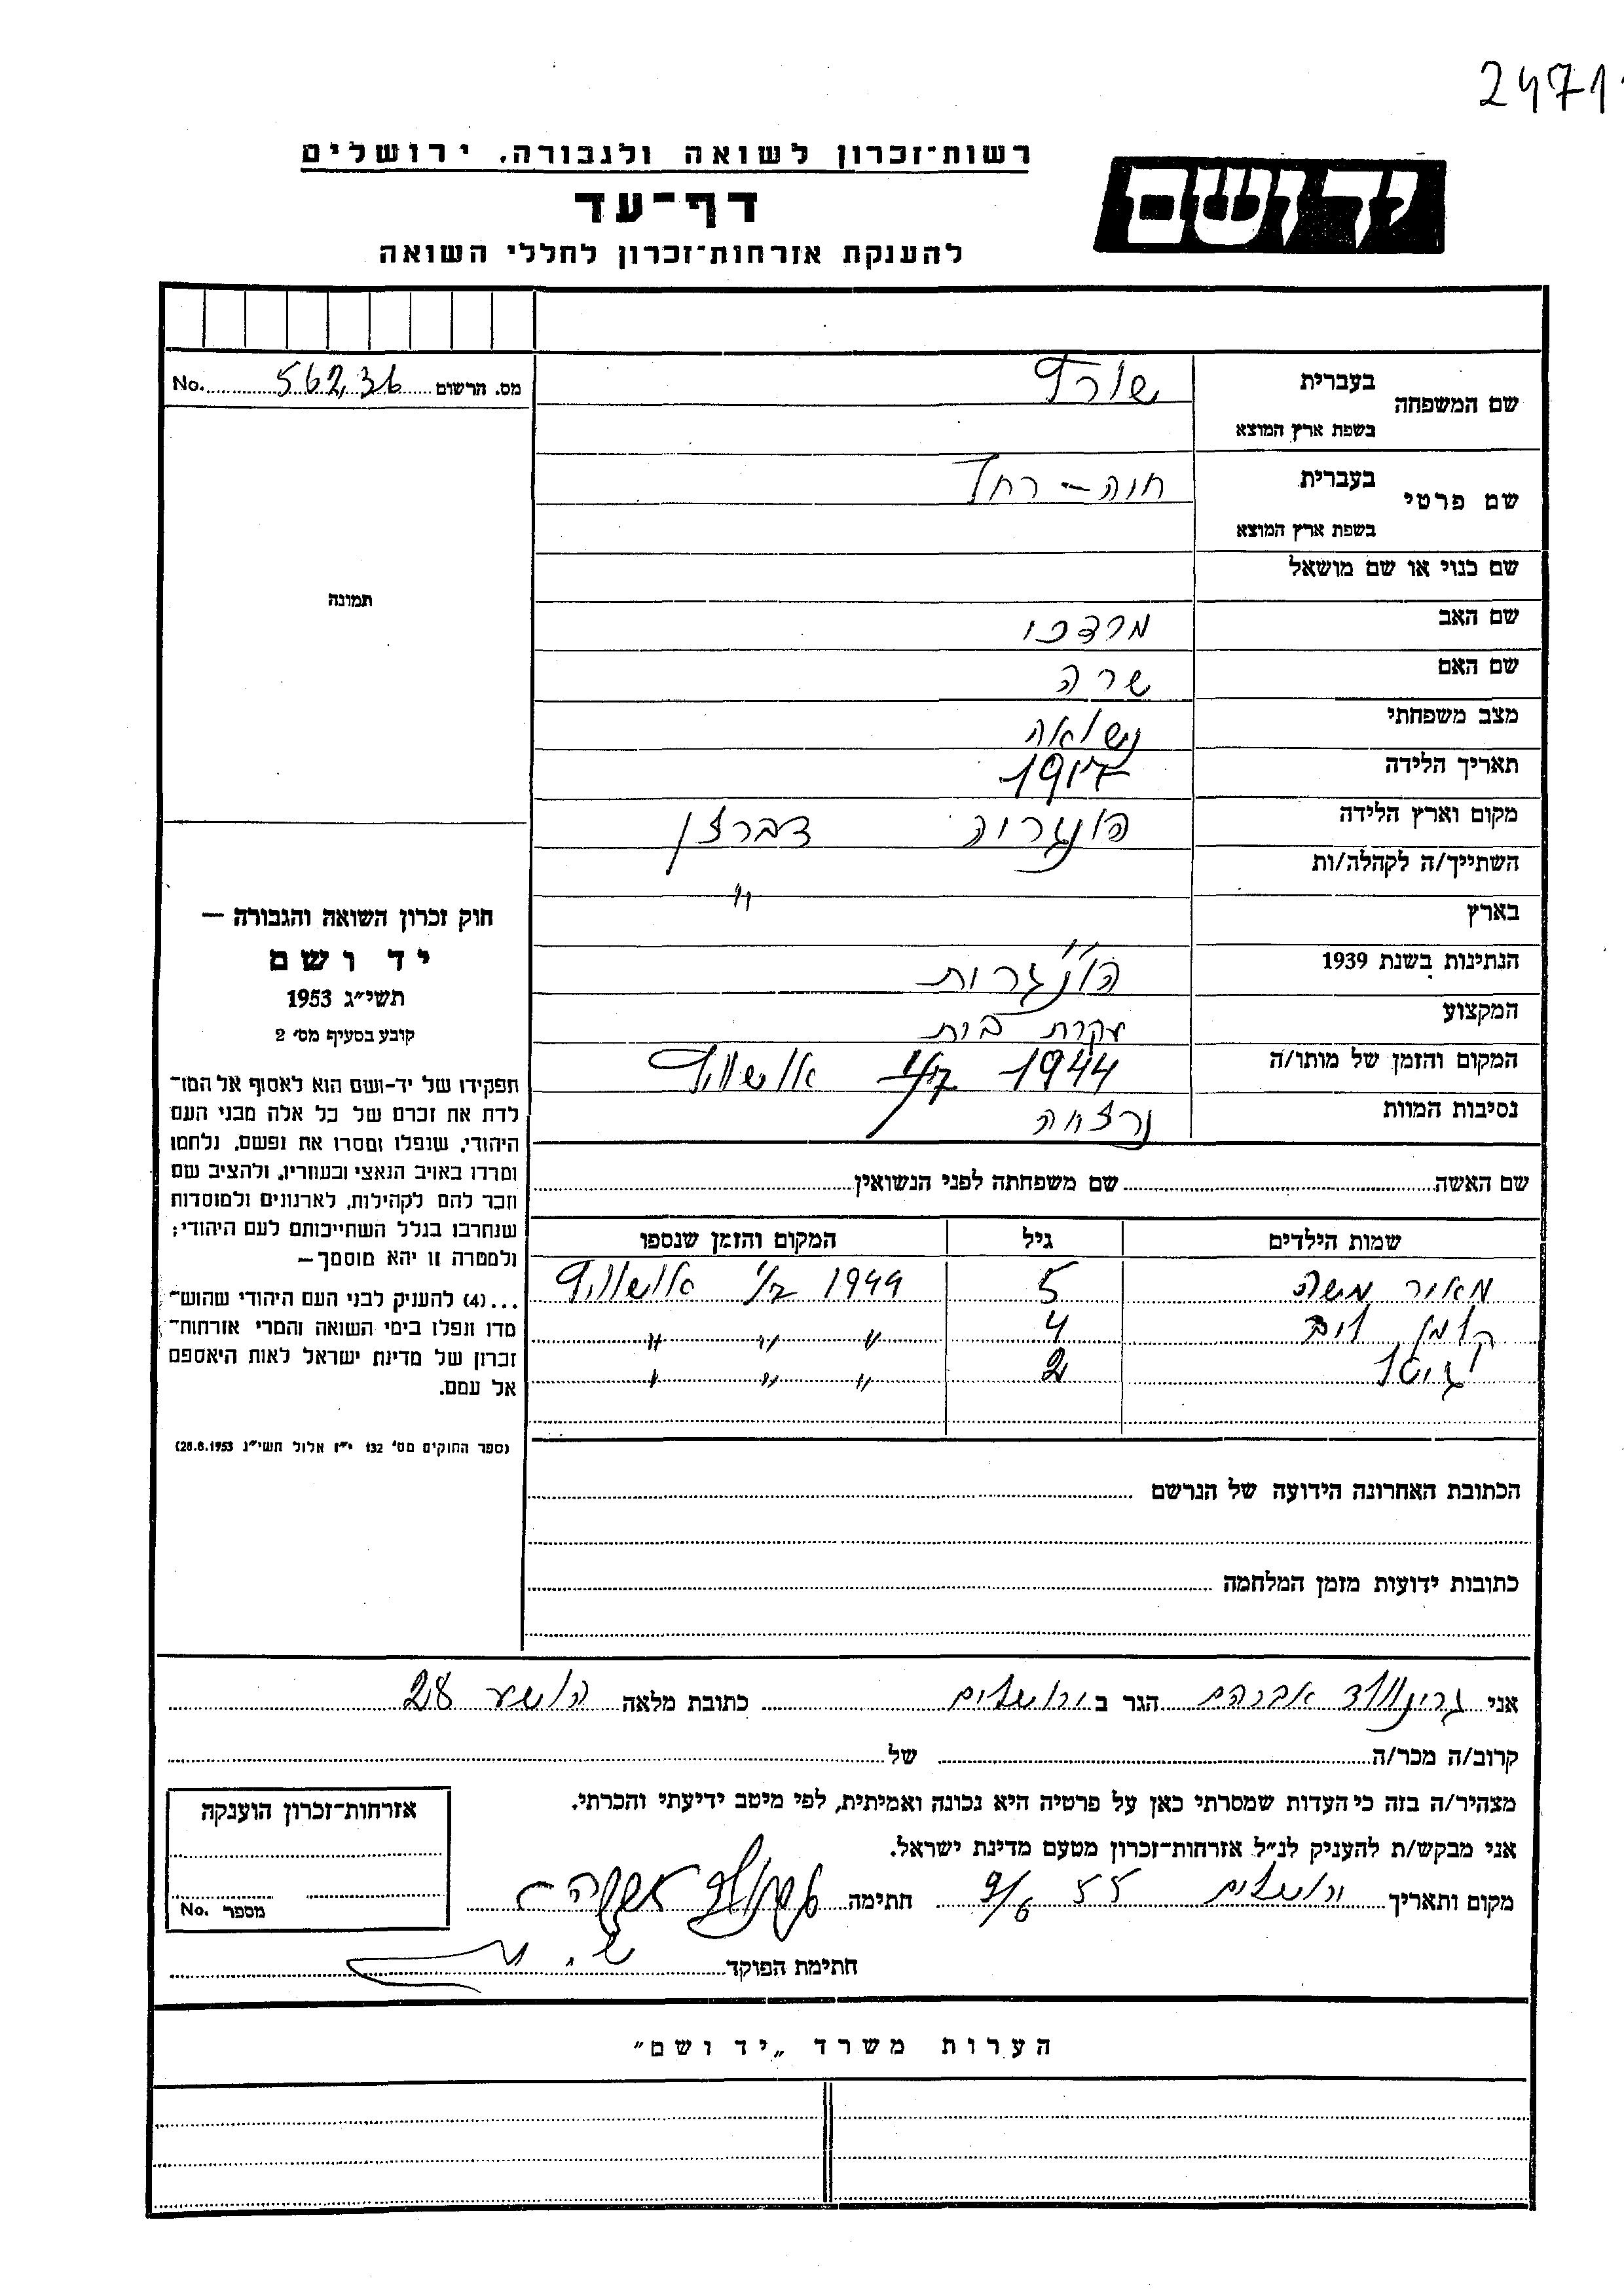 2471
רשות־זכרון לשואה ולגבורה, ירושלים
יד ושם
דף־עד
להענקת אזרחות־זכרון לחללי השואה
מס. הרשום 56236 No.
שם המשפחה בעברית
בשפת ארץ המוצא
שם פרטי בעברית חוה - רחל
בשפת ארץ המוצא
שם כנוי או שם מושאל
שם האב מרדכי
שם האם שרה
מצב משפחתי נשואה
תאריך הלידה 1917
מקום וארץ הלידה הונגריה דברצן
השתייך/ה לקהלה/ות "
בארץ "
הנתינות בשנת 1939 הונגרית
המקצוע עקרת בית
המקום והזמן של מותו/ה 1944 אושוויץ
נסיבות המוות נרצחה
שם האשה שם משפחתה לפני הנשואין
שמות הילדים גיל המקום והזמן שנספו
מאיר משה 5 1944 אושוויץ
קלמן לייב 4 " " "
גיטל 2 " " "
הכתובת האחרונה הידועה של הנרשם
כתובות ידועות מזמן המלחמה
תמונה
חוק זכרון השואה והגבורה —
יד ושם
תשי״ג 1953
קובע בסעיף מס׳ 2
תפקידו של יד-ושם הוא לאסוף אל המו־
לדת את זכרם של כל אלה מבני העם
היהודי, שנפלו ומסרו את נפשם, נלחמו
ומרדו באויב הנאצי ובעוזריו, ולהציב שם
וזכר להם לקהילות, לארגונים ולמוסדות
שנחרבו בגלל השתייכותם לעם היהודי;
ולמטרה זו יהא מוסמך—
...(4) להעניק לבני העם היהודי שהוש־
מדו ונפלו בימי השואה והמרי אזרחות־
זכרון של מדינת ישראל לאות היאספם
אל עמם.
(ספר החוקים מס׳ 132 י״ז אלול תשי״ג 28.8.1953)
אני גרינוולד אברהם הגר ב ירושלים כתובת מלאה הושע 28
קרוב/ה מכר/ה של
מצהיר/ה בזה כי העדות שמסרתי כאן על פרטיה היא נכונה ואמיתית, לפי מיטב ידיעתי והכרתי.
אני מבקש/ת להעניק לנ״ל אזרחות־זכרון מטעם מדינת ישראל.
מקום ותאריך ירושלים 55 9/6 חתימה
חתימת הפוקד
אזרחות־זכרון הוענקה
מספר No.
הערות משרד „יד ושם"